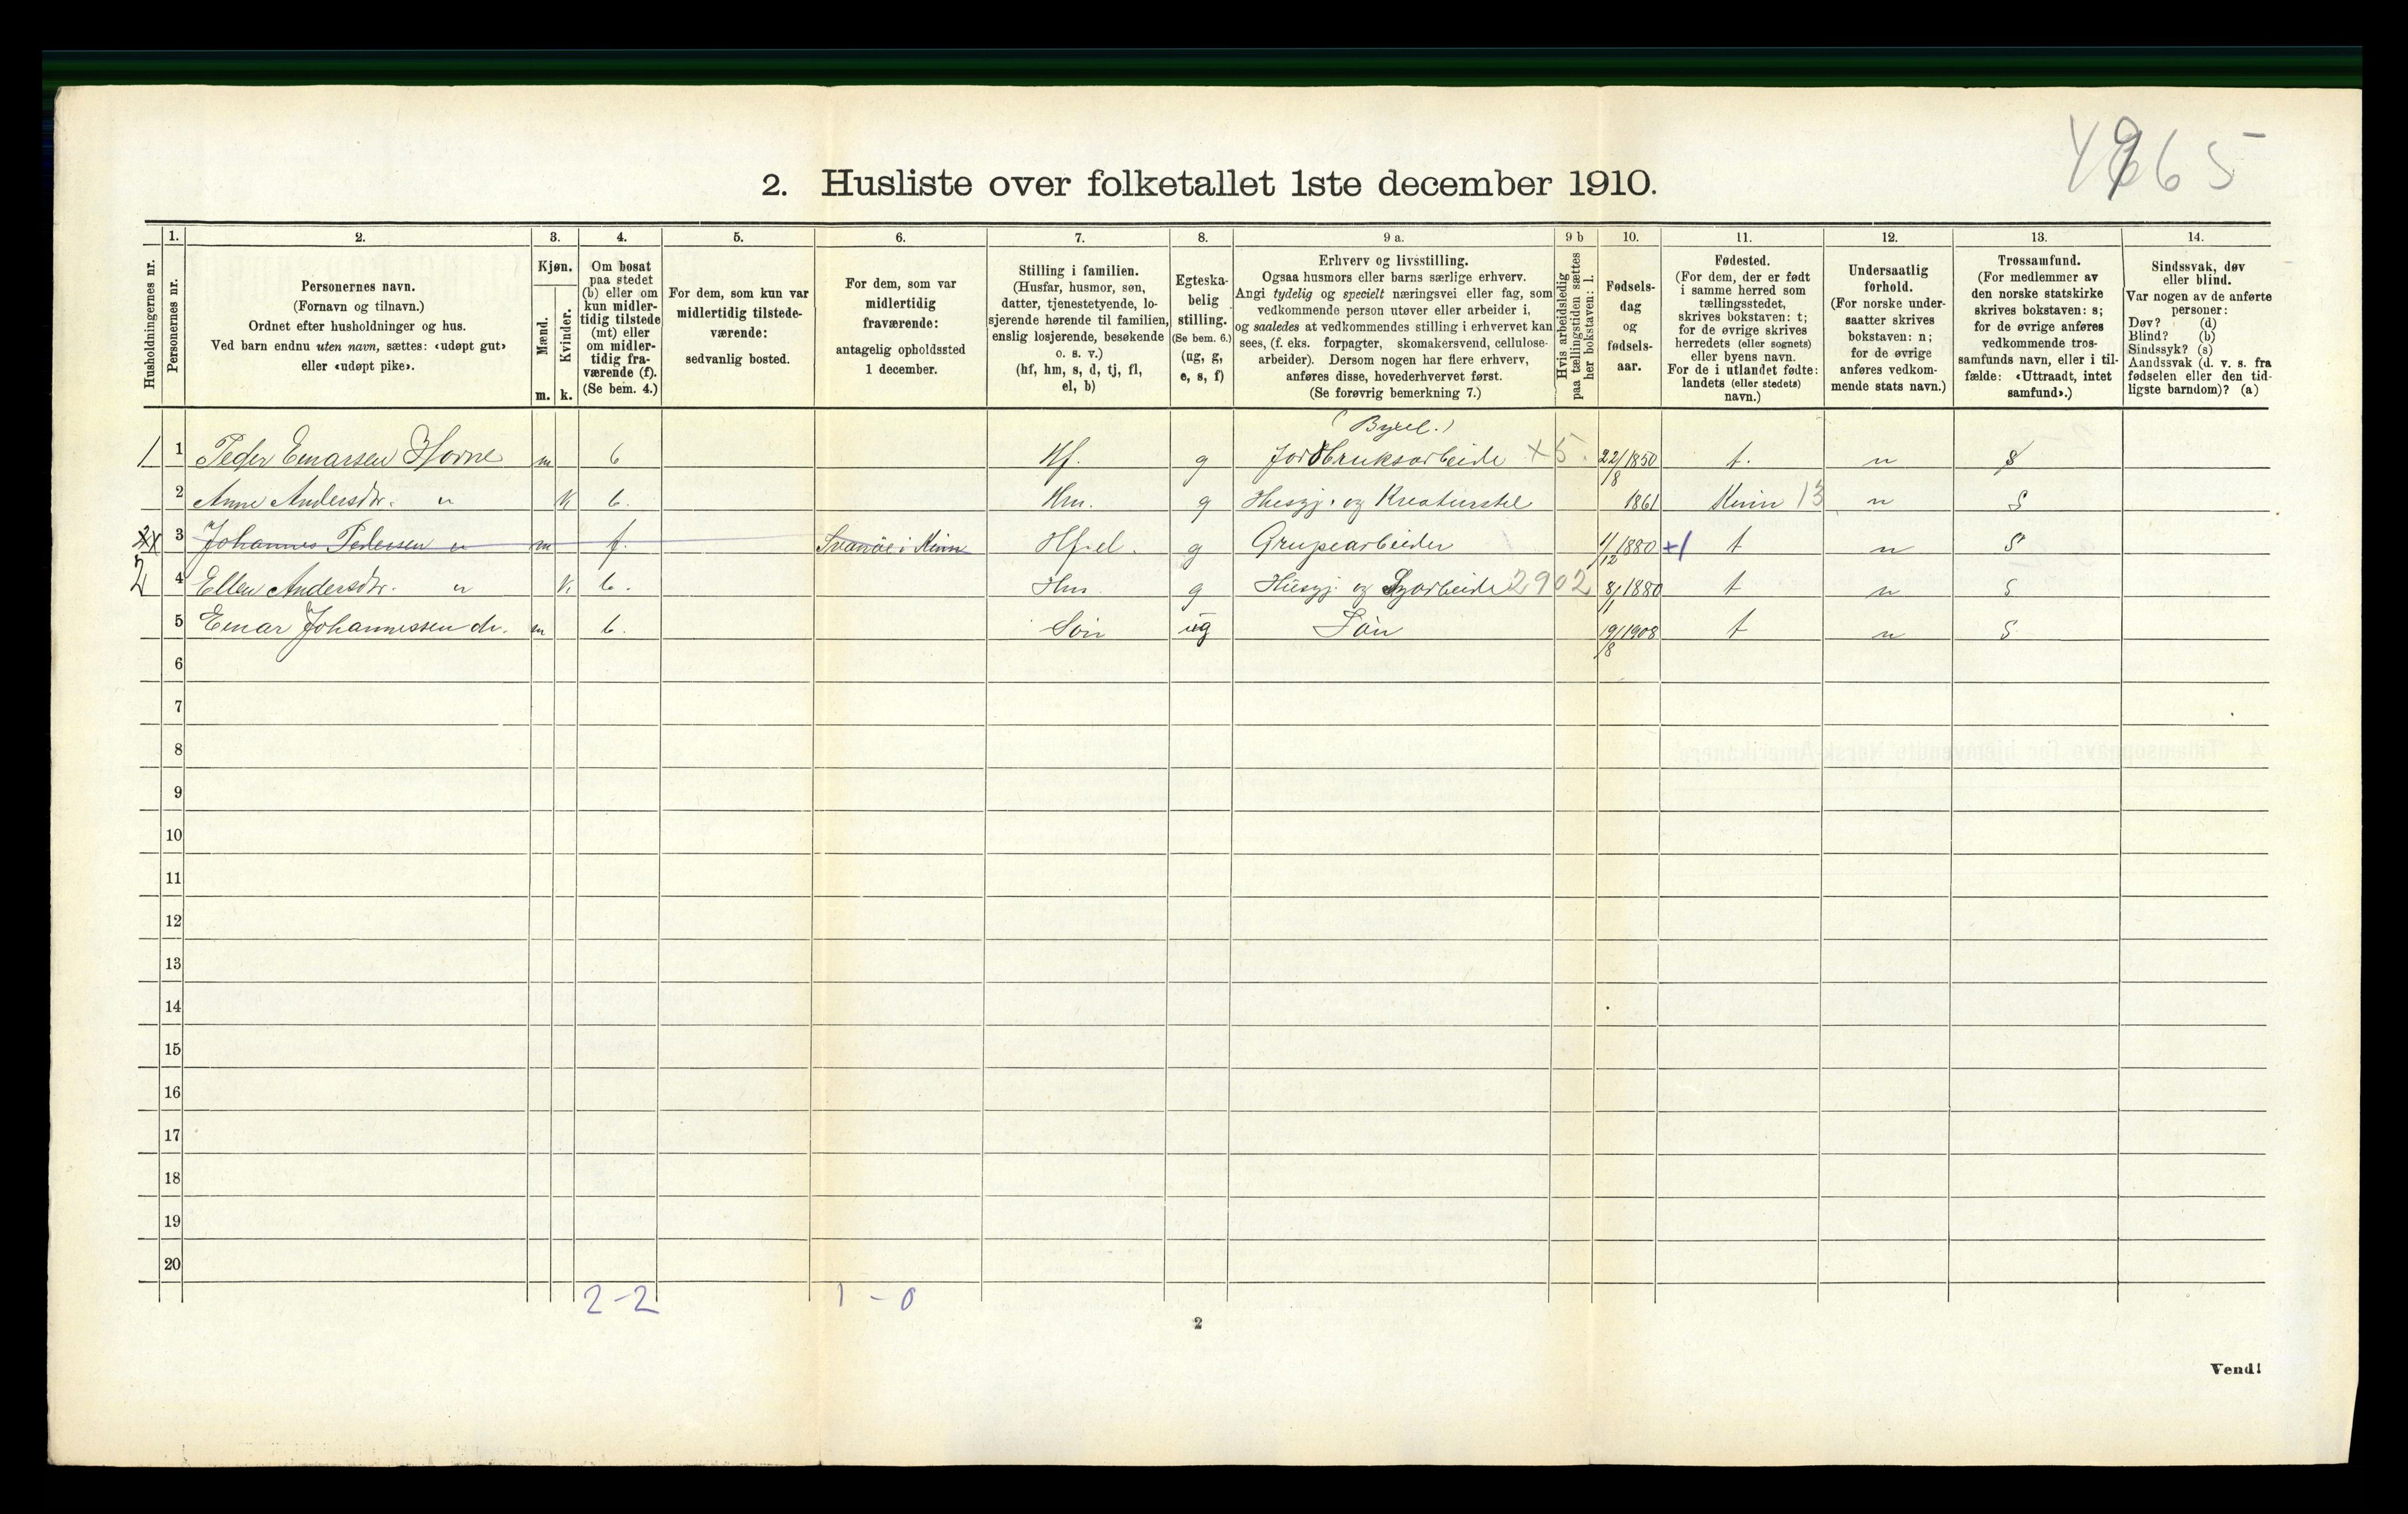 2. Husliste over folketallet 1ste december 1910.
Husholdningernes nr.
1. Personernes nr.
2.
Personernes navn.
(Fornavn og tilnavn.)
Ordnet efter husholdninger og hus.
Ved barn endnu uten navn, sættes: «udøpt gut»
eller «udøpt pike».
3.
Kjøn.
Mænd.
Kvinder.
m. k.
4.
Om bosat
paa stedet
(b) eller om
kun midler-
tidig tilstede
(mt) eller
om midler-
tidig fra-
værende (f).
(Se bem. 4.)
5.
For dem, som kun var
midlertidig tilstede-
værende:
sedvanlig bosted.
6.
For dem, som var
midlertidig
fraværende:
antagelig opholdssted
1 december.
7.
Stilling i familien.
(Husfar, husmor, søn,
datter, tjenestetyende, lo-
sjerende hørende til familien,
enslig losjerende, besøkende
o. s. v.)
(hf, hm, s, d, tj, fl,
el, b)
8.
Egteska-
belig
stilling.
(Se bem. 6.)
(ug, g,
e, s, f)
9 a.
Erhverv og livsstilling.
Ogsaa husmors eller barns særlige erhverv.
Angi tydelig og specielt næringsvei eller fag, som
vedkommende person utøver eller arbeider i,
og saaledes at vedkommendes stilling i erhvervet kan
sees, (f. eks. forpagter, skomakersvend, cellulose-
arbeider). Dersom nogen har flere erhverv,
anføres disse, hovederhvervet først.
(Se forøvrig bemerkning 7.)
9 b
Hvis arbeidsledig
paa tællingstiden sættes
her bokstaven: l.
10.
Fødsels-
dag
og
fødsels-
aar.
11.
Fødested.
(For dem, der er født
i samme herred som
tællingsstedet,
skrives bokstaven: t;
for de øvrige skrives
herredets (eller sognets)
eller byens navn.
For de i utlandet fødte:
landets (eller stedets)
navn.)
12.
Undersaatlig
forhold.
(For norske under-
saatter skrives
bokstaven: n;
for de øvrige
anføres vedkom-
mende stats navn.)
13.
Trossamfund.
(For medlemmer av
den norske statskirke
skrives bokstaven: s;
for de øvrige anføres
vedkommende tros-
samfunds navn, eller i til-
fælde: «Uttraadt, intet
samfund».)
14.
Sindssvak, døv
eller blind.
Var nogen av de anførte
personer:
Døv? (d)
Blind? (b)
Sindssyk? (s)
Aandssvak (d. v. s. fra
fødselen eller den tid-
ligste barndom)? (a)
1 1 Peder Einarsen Hovne m b Hf. g Jordbruksarbeide x5. 22/8 1850 t. n s
2 Anne Andersdtr. " k b. Hm. g Husgj. og Kreaturstel 1861 Kinn 13 n s
3 Johannes Pedersen " m f. Svanøe i Kinn Hf-el. g Grupearbeider 1/12 1880 +1 t n s
2 4 Ellen Andersdtr. " k b. Hm. g Husgj. og Syarbeide 2902 8/1 1880 t n s
5 Einar Johannessen do. m b. Søn ug Søn 19/8 1908 t n s
6
7
8
9
10
11
12
13
14
15
16
17
18
19
20
2-2 1-0
2
Vend!